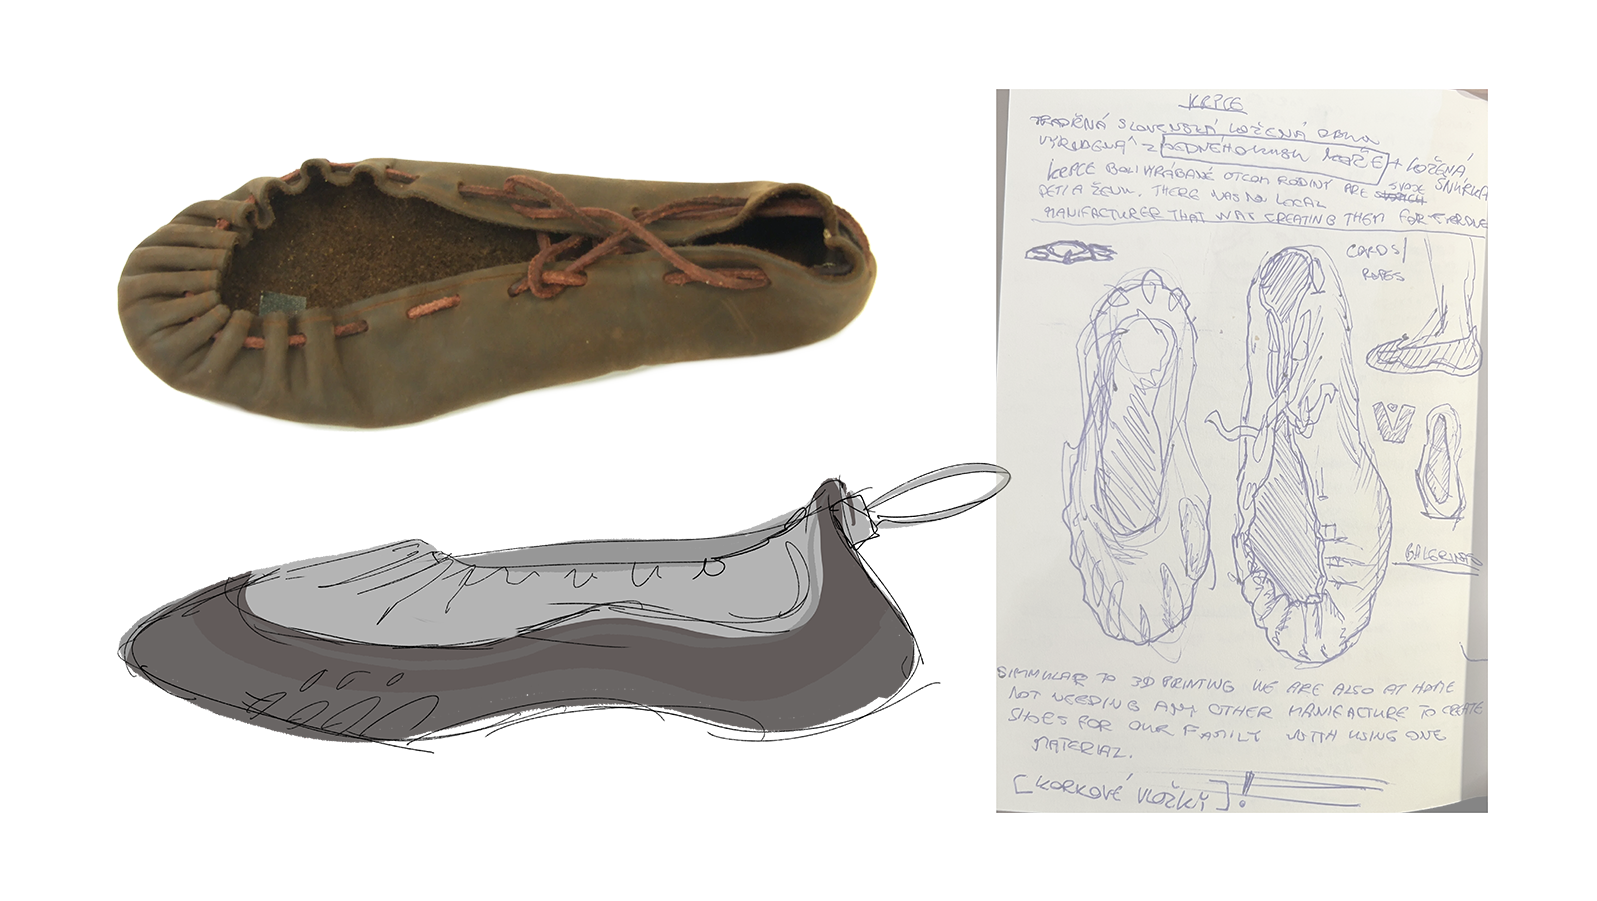 KRPCE
TRADIČNÁ SLOVENSKÁ KOŽENÁ OBUV
VYROBENÁ Z JEDNÉHO KUSU KOŽE + KOŽENÁ
KRPCE BOLI VYRÁBANÉ OTCOM RODINY PRE SVOJE ŠNÚRKA
DETI A ŽENU. THERE WAS NO LOCAL
MANIFACTURER THAT WAS CREATING THEM FOR
CORDS/
ROPES
BALERINAS
SIMMULAR TO 3D PRINTING WE ARE ALSO AT HOME
NOT NEEDING ANY OTHER MANIFACTURE TO CREATE
SHOES FOR OUR FAMILY WITH USING ONE
MATERIAL.
[KORKOVÉ VLOŽKY]!